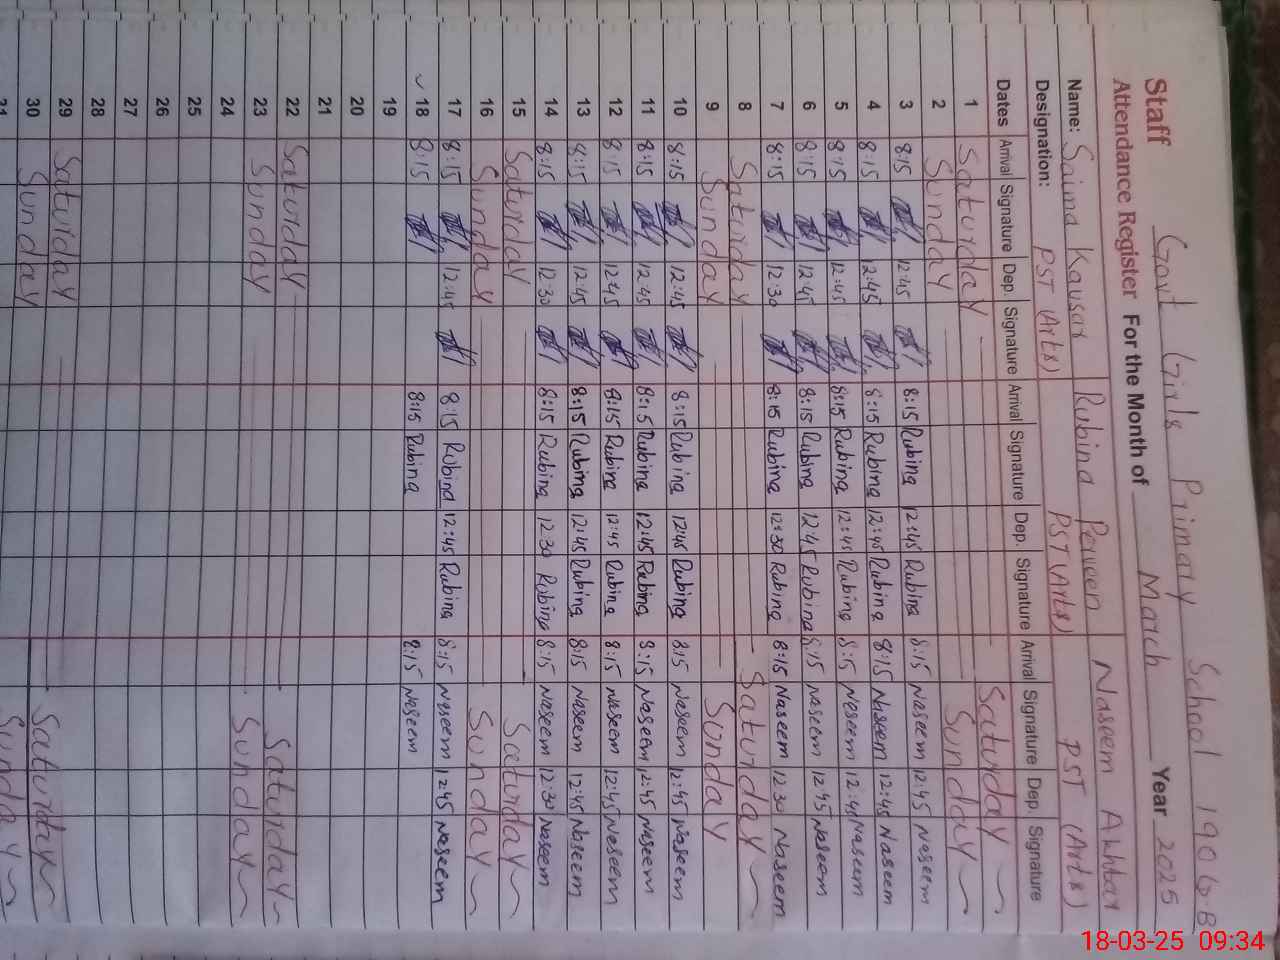 Govt Girls Primary School 190 G.B
Staff
Attendance Register For the Month of March Year 2025
Name: Saima Kausar Rubina Perveen Naseem Akhtar
Designation: PST (Arts) PST (Arts) PST (Arts)
Dates Arrival Signature Dep. Signature Arrival Signature Dep. Signature Arrival Signature Dep. Signature
1 Saturday Saturday
2 Sunday Sunday
3 8:15 12:45 8:15 Rubina 12:45 Rubina 8:15 Naseem 12:45 Naseem
4 8:15 12:45 8:15 Rubina 12:45 Rubina 8:15 Naseem 12:45 Naseem
5 8:15 12:45 8:15 Rubina 12:45 Rubina 8:15 Naseem 12:45 Naseem
6 8:15 12:45 8:15 Rubina 12:45 Rubina 8:15 Naseem 12:45 Naseem
7 8:15 12:30 8:15 Rubina 12:30 Rubina 8:15 Naseem 12:30 Naseem
8 Saturday Saturday
9 Sunday Sunday
10 8:15 12:45 8:15 Rubina 12:45 Rubina 8:15 Naseem 12:45 Naseem
11 8:15 12:45 8:15 Rubina 12:45 Rubina 8:15 Naseem 12:45 Naseem
12 8:15 12:45 8:15 Rubina 12:45 Rubina 8:15 Naseem 12:45 Naseem
13 8:15 12:45 8:15 Rubina 12:45 Rubina 8:15 Naseem 12:45 Naseem
14 8:15 12:30 8:15 Rubina 12:30 Rubina 8:15 Naseem 12:30 Naseem
15 Saturday Saturday
16 Sunday Sunday
17 8:15 12:45 8:15 Rubina 12:45 Rubina 8:15 Naseem 12:45 Naseem
18 8:15 8:15 Rubina 8:15 Naseem
19
20
21
22 Saturday Saturday
23 Sunday Sunday
24
25
26
27
28
29 Saturday Saturday
30 Sunday Sunday
31
18-03-25 09:34